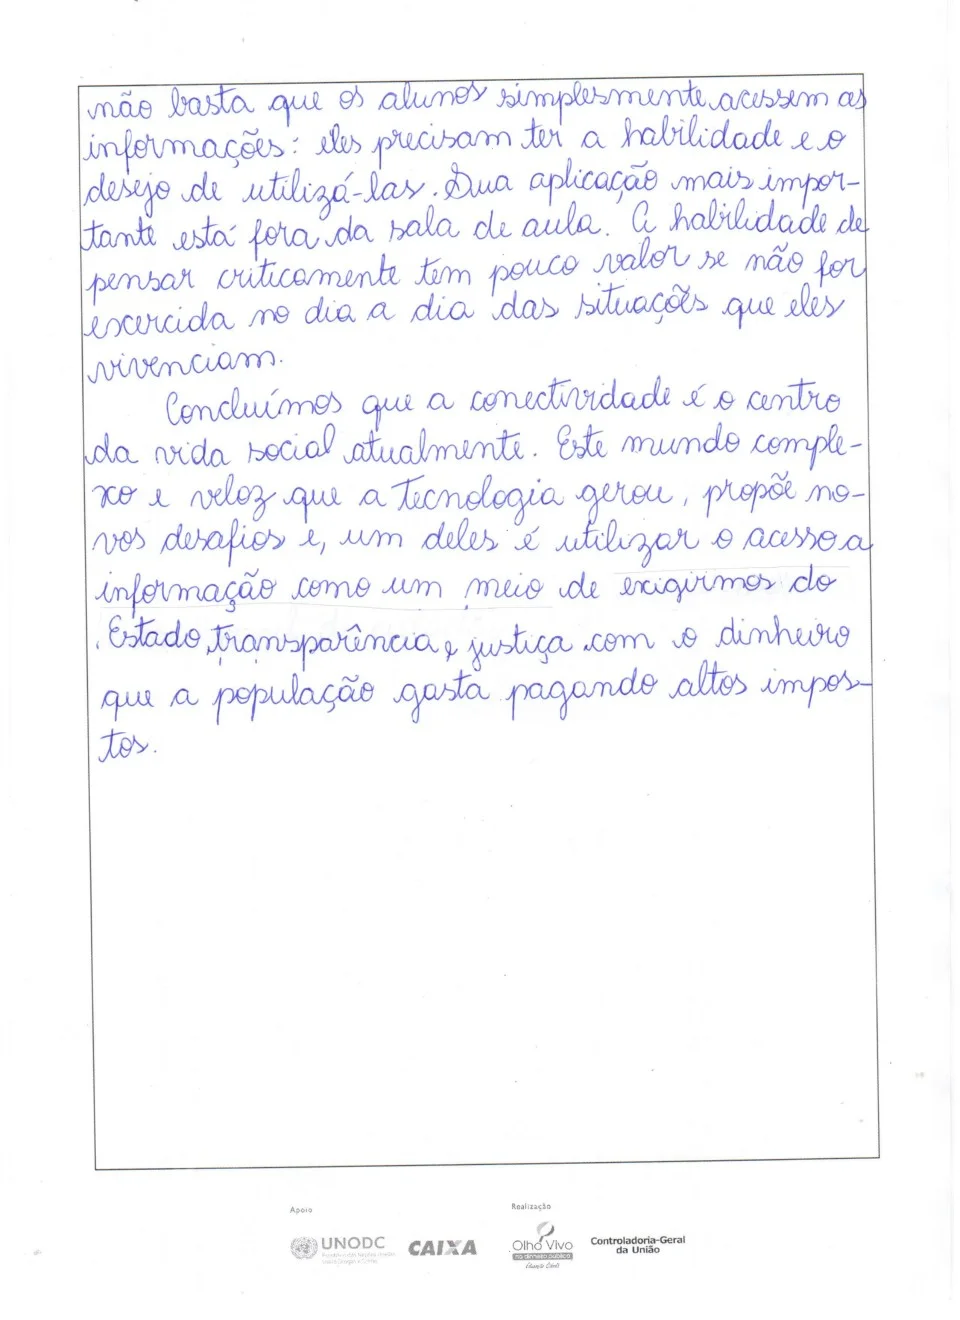 não basta que os alunos simplesmente acessem as
informações: eles precisam ter a habilidade e o
desejo de utilizá-las. Sua aplicação mais impor-
tante está fora da sala de aula. A habilidade de
pensar criticamente tem pouco valor se não for
exercida no dia a dia das situações que eles
vivenciam.
Concluímos que a conectividade é o centro
da vida social atualmente. Este mundo comple-
xo e veloz que a tecnologia gerou, propõe no-
vos desafios e, um deles é utilizar o acesso a
informação como um meio de exigirmos do
Estado transparência e justiça com o dinheiro
que a população gasta pagando altos impos-
tos.
Apoio
Realização
UNODC
CAIXA
Olho Vivo
no dinheiro público
Controladoria-Geral
da União